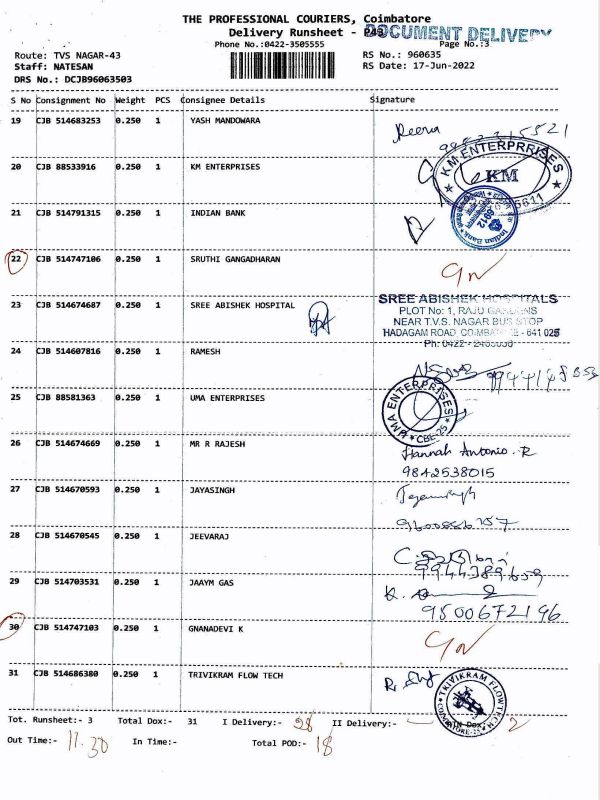 THE PROFESSIONAL COURIERS, Coimbatore
Delivery Runsheet - P43
DOCUMENT DELIVERY
Phone No.:0422-3505555
Page No.:3
Route: TVS NAGAR-43
RS No.: 960635
Staff: NATESAN
RS Date: 17-Jun-2022
DRS No.: DCJB96063503
S No Consignment No Weight PCS Consignee Details Signature
19 CJB 514683253 0.250 1 YASH MANDOWARA
20 CJB 88533916 0.250 1 KM ENTERPRISES
KM ENTERPRRISES
KM
21 CJB 514791315 0.250 1 INDIAN BANK
Indian Bank
22 CJB 514747106 0.250 1 SRUTHI GANGADHARAN
23 CJB 514674687 0.250 1 SREE ABISHEK HOSPITAL
SREE ABISHEK HOSPITALS
PLOT No: 1, RAJU GARDENS
NEAR T.V.S. NAGAR BUS STOP
Ph: 0422 -
24 CJB 514607816 0.250 1 RAMESH
25 CJB 88581363 0.250 1 UMA ENTERPRISES
UMA ENTERPRISES
CBE-25
26 CJB 514674669 0.250 1 MR R RAJESH
Hannah Antonio. R
9842538015
27 CJB 514670593 0.250 1 JAYASINGH
28 CJB 514670545 0.250 1 JEEVARAJ
9944389659
29 CJB 514703531 0.250 1 JAAYM GAS
9500672196
30 CJB 514747103 0.250 1 GNANADEVI K
31 CJB 514686380 0.250 1 TRIVIKRAM FLOW TECH
TRIVIKRAM FLOWTECH
COIMBATORE-25
Tot. Runsheet:- 3 Total Dox:- 31 I Delivery:- 28 II Delivery:- 2
Out Time:- 11.30 In Time:- Total POD:- 18